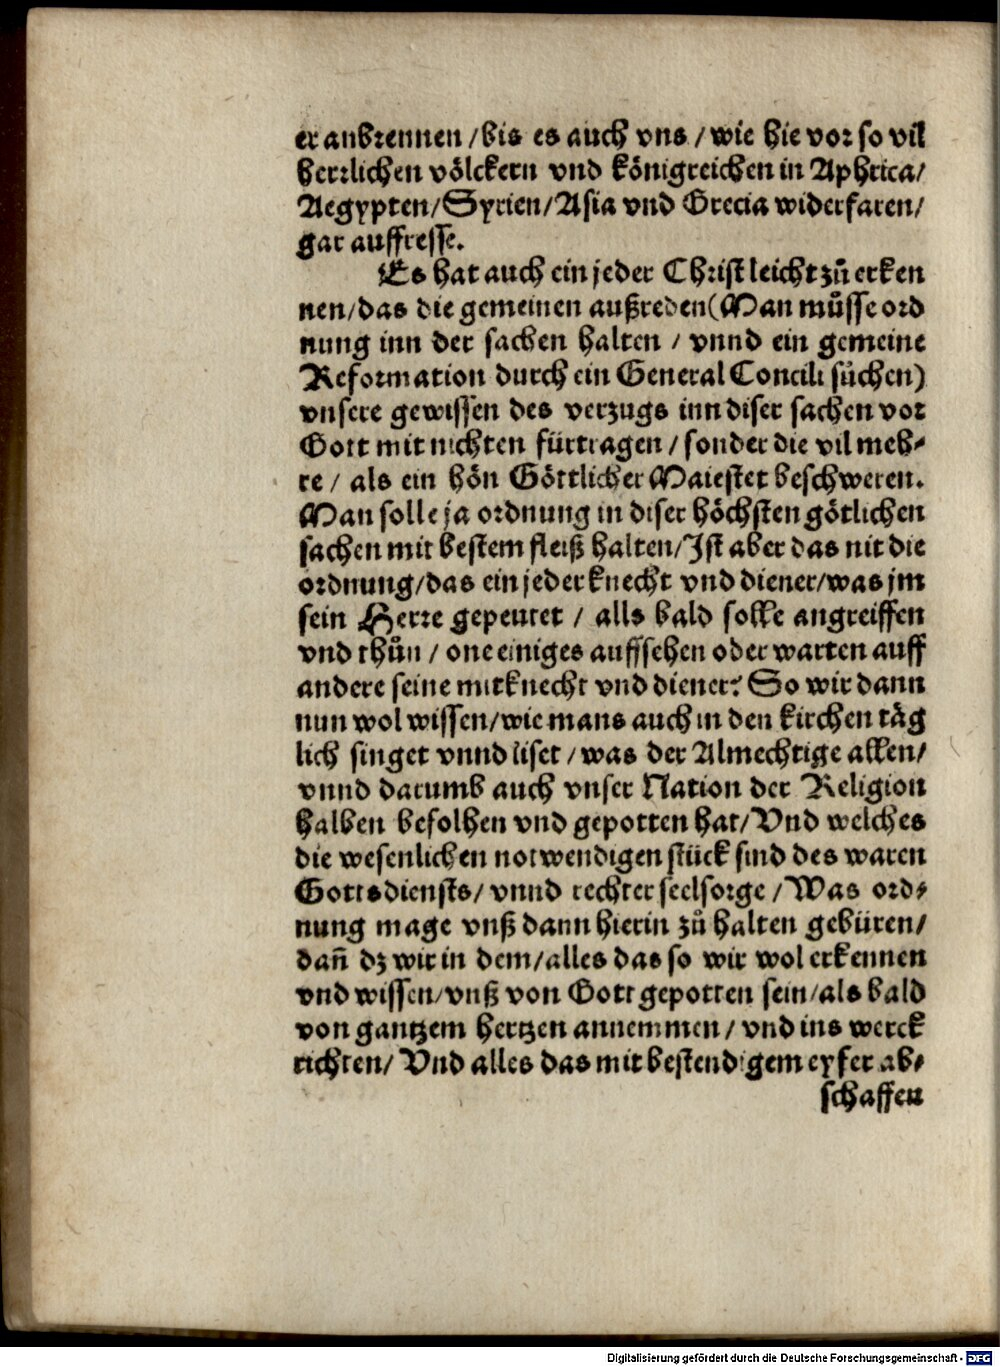 er anbrennen / bis es auch vns / wie hie vor so vil
herrlichen völckern vnd königreichen in Aphrica/
Aegypten/ Syrien/ Asia vnd Grecia widerfaren/
gar auffresse.
Es hat auch ein jeder Christ leicht zů erken
nen/ das die gemeinen außreden (Man můsse ord
nung inn der sachen halten / vnnd ein gemeine
Reformation durch ein General Concili sůchen)
vnsere gewissen des verzugs inn diser sachen vor
Gott mit nichten fürtragen / sonder die vil meh⸗
re / als ein hön Göttlicher Maiestet beschweren.
Man solle ja ordnung in diser höchsten götlichen
sachen mit bestem fleiß halten/ Ist aber das nit die
ordnung/ das ein jeder knecht vnd diener/ was jm
sein Herre gepeutet / alls bald solle angreiffen
vnd thůn / one einiges auffsehen oder warten auff
andere seine mitknecht vnd diener? So wir dann
nun wol wissen/ wie mans auch in den kirchen tåg
lich singet vnnd liset / was der Almechtige allen/
vnnd darumb auch vnser Nation der Religion
halben befolhen vnd gepotten hat/ Vnd welches
die wesenlichen notwendigen stück sind des waren
Gottsdiensts/ vnnd rechter seelsorge / Was ord⸗
nung mage vnß dann hierin zů halten gebüren/
dañ dz wir in dem/ alles das so wir wol erkennen
vnd wissen/ vnß von Gott gepotten sein/ als bald
von gantzem hertzen annemmen/ vnd ins werck
richten/ Vnd alles das mit bestendigem eyfer ab⸗
schaffen
Digitalisierung gefördert durch die Deutsche Forschungsgemeinschaft - DFG